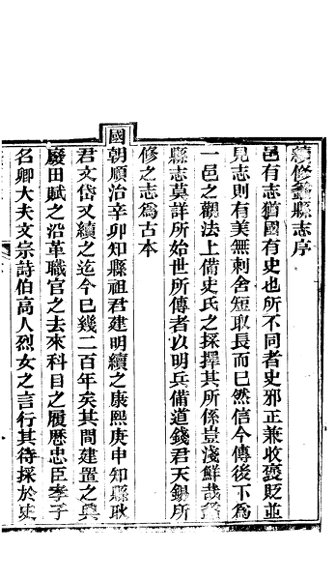 續修蠡縣志序
邑有志猶國有史也所不同者史邪正兼收褒貶並
見志則有美無刺舍短取長而已然信今傳後下爲
一邑之觀法上備史氏之採擇其所係豈淺鮮哉蠡
縣志莫詳所始世所傳者以明兵備道錢君天錫所
修之志爲古本
國朝順治辛卯知縣祖君建明續之康熙庚申知縣耿
君文岱又續之迄今已幾二百年矣其間建置之興
廢田賦之沿革職官之去來科目之履歷忠臣孝子
名卿大夫文宗詩伯高人烈女之言行其待採於史